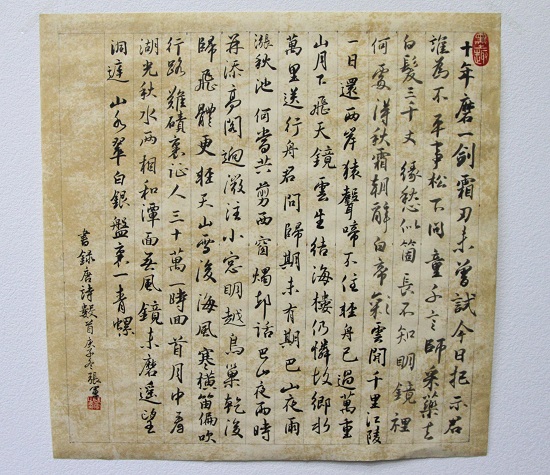 十年磨一劍霜刃未曾試今日把示君
誰為不平事松下問童子言師采藥去
白髮三千丈緣愁似箇長不知明鏡裡
何處得秋霜朝辭白帝彩雲間千里江陵
一日還兩岸猿聲啼不住輕舟已過萬重
山月下飛天鏡雲生結海樓仍憐故鄉水
萬里送行舟君問歸期未有期巴山夜雨
漲秋池何當共剪西窗燭卻話巴山夜雨時
并添高閣迥微注小窗明越鳥巢乾後
歸飛體更輕天山雪後海風寒橫笛偏吹
行路難磧裏征人三十萬一時回首月中看
湖光秋水兩相和潭面無風鏡未磨遙望
洞庭山水翠白銀盤裏一青螺
書錄唐詩數首庚子冬張軍